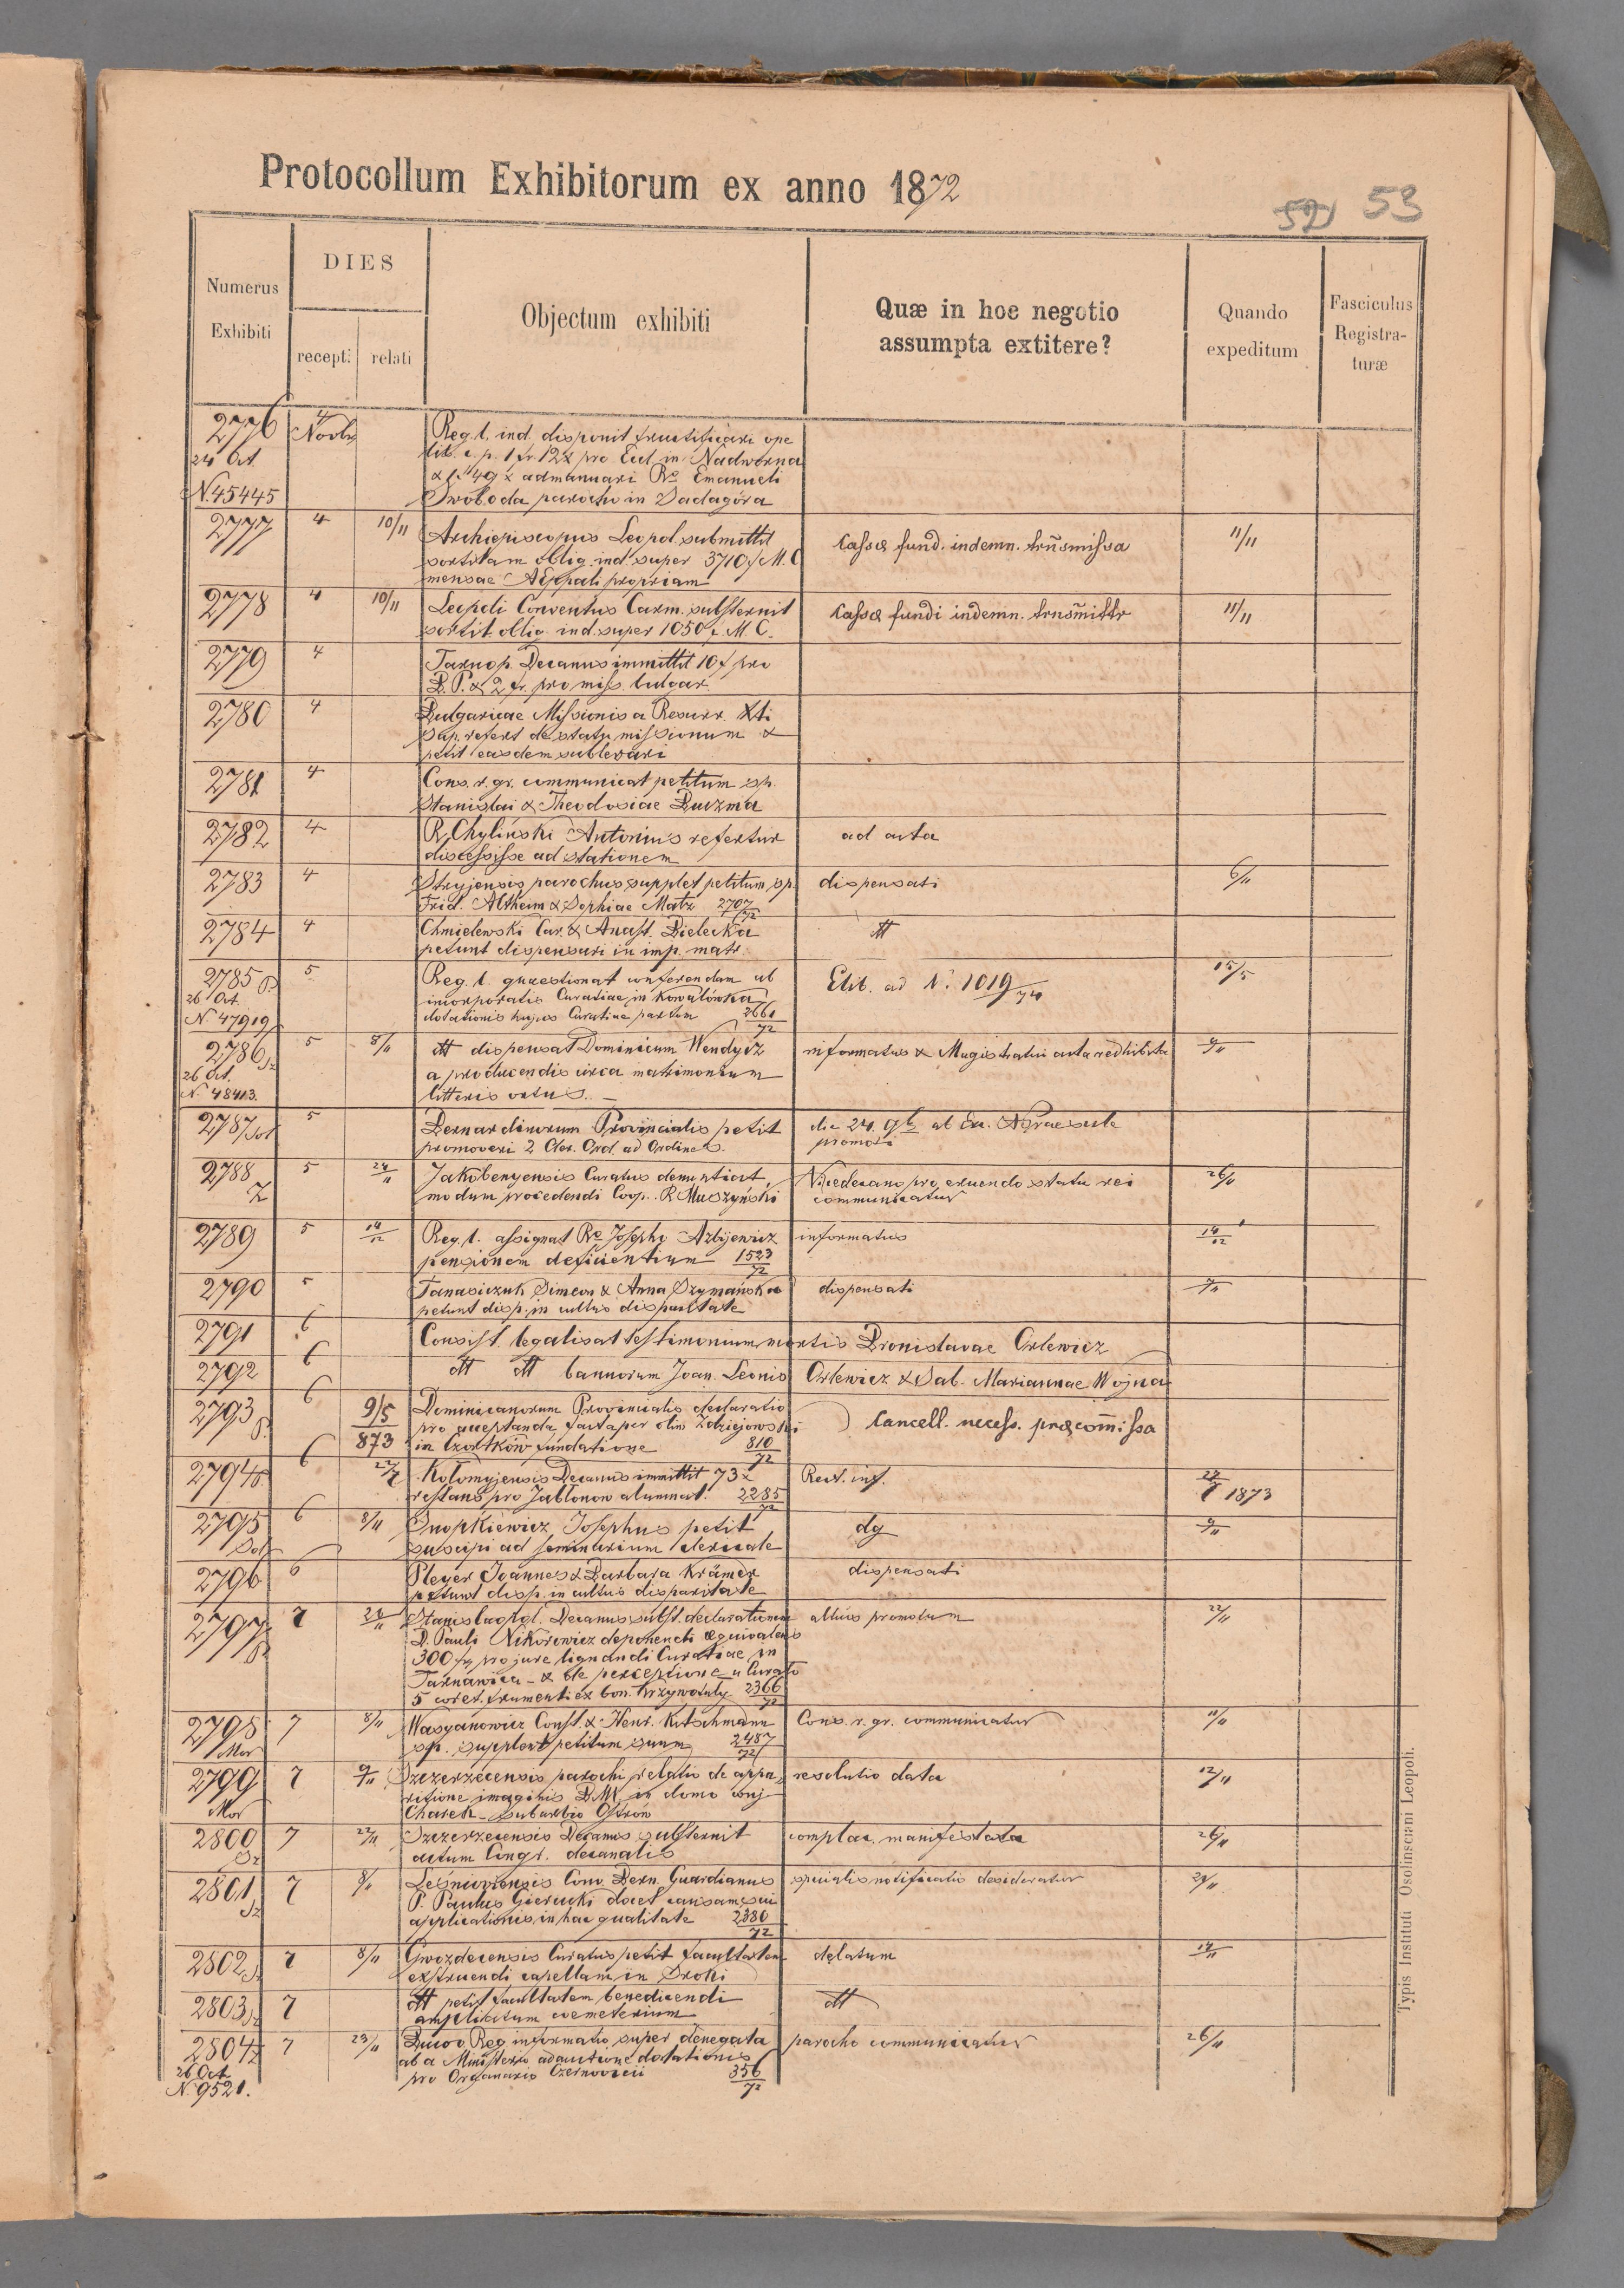 Protocollum Exhibitorum ex anno 1872
52 53
Numerus Exhibiti
DIES
recepti relati
Objectum exhibiti
Quæ in hoc negotio assumpta extitere?
Quando expeditum
Fasciculus Registra-turæ
2776 4 Reg. t. ind. disponit fructificari ope
24 Oct. Novbr lit. a. p. 1 fr. 12x pro Eccl. in Nadworna
& f. 49 x admanuari Rdo Emanueli
N. 45445 Swoboda parocho in Sadagóra
2777 4 10/11 Archiepiscopus Leopol. submittit Cassæ fund. indemn. trnsmissa 11/11
sortitam oblig. ind. super 3710 f M. C
mensae AEppali propriam
2778 4 10/11 Leopoli Conventus Carm. substernit Cassæ fundi indemn. trnsmittr 11/11
sortit. oblig. ind. super 1050 f. M. C.
2779 4 Tarnop. Decanus immittit 10 f pro
B. P. & 2 fr. pro miss. bulgar.
2780 4 Bulgaricae Missionis a Resurr. Xti
Sup. refert de statu missionum &
petit easdem sublevari
2781 4 Cons. r. gr. communicat petitum sp.
Stanislai & Theodosiae Buczma
2782 4 R. Chyliński Antonius refertur ad acta
discessisse ad stationem
2783 4 Stryjensis parochus supplet petitum sp. dispensati 6/11
Frid. Altheim & Sophiae Matz 2707/72
2784 4 Chmielewski Car. & Anast. Bielecka dtt
petunt dispensari in imp. matr.
2785 5 Reg. t. quaestionat conferendam ab Exh. ad N. 1019/74 15/5
26 Oct. incorporatis Curatiae in Kowalówka
N. 47919 dotationis hujus Curatiae partem 2661/72
2786 5 8/11 dtt dispensat Dominicum Wendycz informatus & Magistratui acta redhibita 9/11
26 Oct. a producendis circa matrimonium
N. 48413. litteris ortus. —
2787 5 Bernardinorum Provincialis petit die 24. 9b ab Praesule
promoveri 2 Cler. Ord. ad Ordines. promoti
2788 5 24/11 Jakobenyensis Curatus denuntiat Vicedecano pro eruendo statu rei 26/11
modum procedendi Coop. R. Muszyński communicatur
2789 5 14/12 Reg. t. assignat Rdo Josepho Azbijewicz informatus 14/12
pensionem deficientium 1523/72
2790 5 Tanasiczuk Simeon & Anna Szymańska dispensati 7/11
petunt disp. in cultus disparitate
2791 6 Consist. legalisat testimonium mortis Bronislavae Orlewicz
2792 6 dtt dtt bannorum Joan. Leonis Orlewicz & Sab. Mariannae Wojna
2793 6 9/5 873 Dominicanorum Provincialis declaratio Cancell. necess. præcomissa
pro acceptanda facta per olim Zdziejowski
in Czortków fundatione 810/72
2794 6 Kołomyjensis Decanus immittit 73 x Rect. inf. 1873
restans pro Jabłonow alumnat. 2285/72
2795 6 8/11 Snopkiewicz Josephus petit dg 9/11
suscipi ad seminarium clericale
2796 6 Pleyer Joannes & Barbara Krämer dispensati
petunt disp. in cultus disparitate
2797 7 Stanislaopol. Decanus subst. declarationem altius promotum 22/11
D. Pauli Nikorowicz deponendi æquivalens
300 fr. pro jure lignandi Curatiae in
Tarnawica — & de perceptione a Curato
5 coret. frumenti ex bon. Krzywotuly 2366/72
2798 7 8/11 Wasyanowicz Const. & Henr. Kutschmann Cons. r. gr. communicatur 11/11
Mor sp. supplent petitum suum 2487/72
2799 7 9/11 Szczerzecensis parochi relatio de appa- resolutio data 12/11
Mor ritione imaginis B.M. in domo conj.
Charek — suburbio Ostrów
2800 7 22/11 Szczerzecensis Decanus substernit complac. manifestata 26/11
actum Congr. decanalis
2801 7 8/11 Leśnioviensis Conv. Bern. Guardianus specialis notificatio desideratur
P. Paulus Gierucki docet causam sui
applicationis in hac qualitate 2380/72
2802 7 8/11 Gwozdecensis Curatus petit facultatem delatum 14/11
exstruendi capellam in Sroki
2803 7 dtt petit facultatem benedicendi dtt
ampliatum coemeterium
2804 7 23/11 Bucov. Reg. informatio super denegata parocho communicatur 26/11
26 Oct. ab a Ministerio adauctione dotationis
N. 9521. pro Organario Czernovicii 356/72
Typis Instituti Ossolinsciani Leopoli.